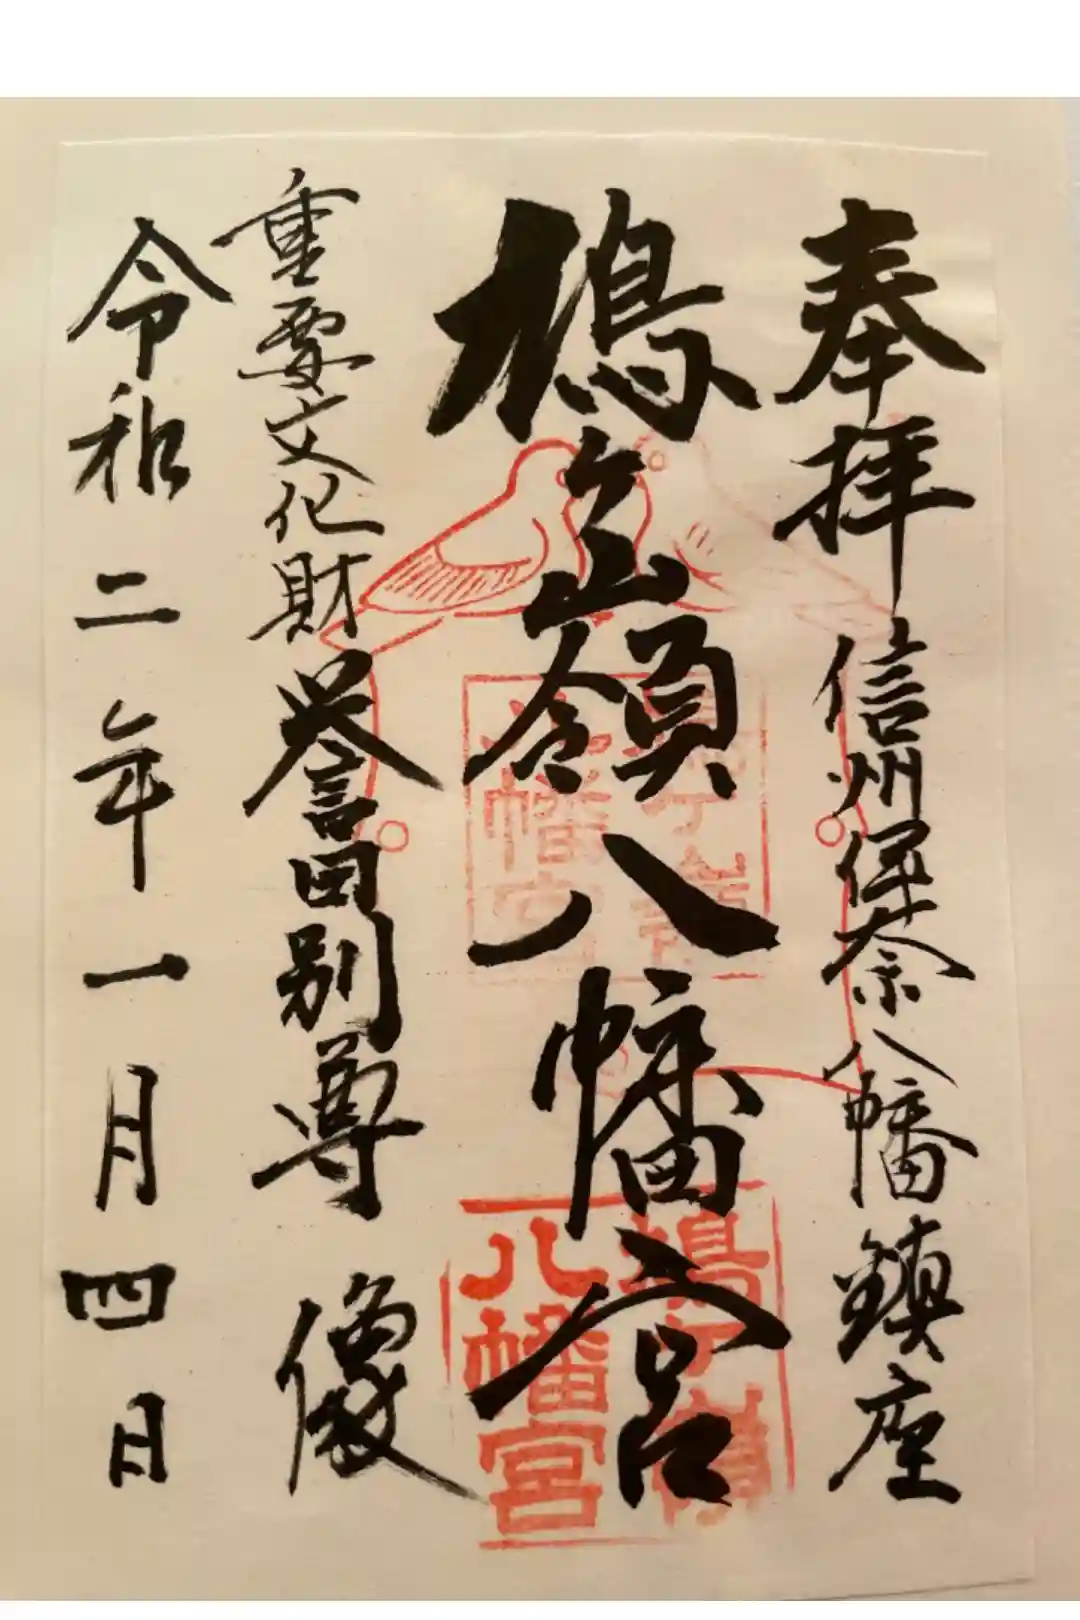 奉拝 信州伊奈八幡鎮座
鳩ヶ嶺八幡宮
重要文化財 誉田別尊像
令和二年一月四日
鳩ケ嶺
八幡宮
鳩ケ嶺
八幡宮